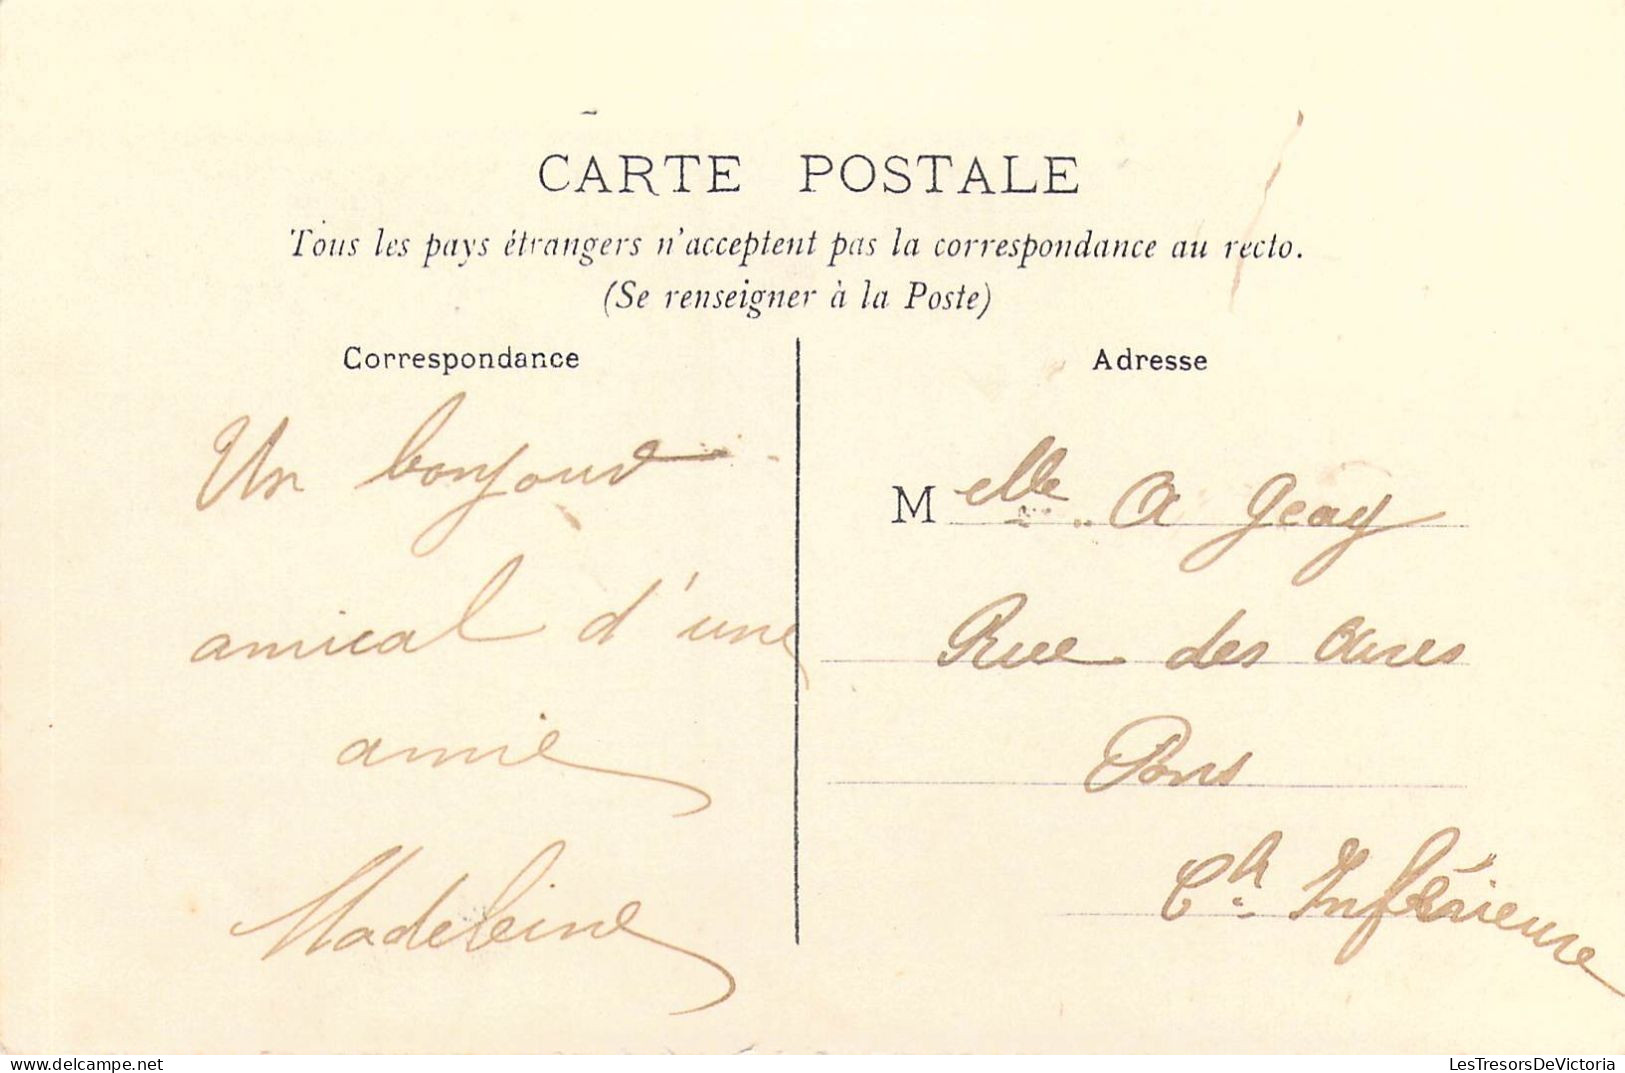 CARTE POSTALE
Tous les pays étrangers n'acceptent pas la correspondance au recto.
(Se renseigner à la Poste)
Correspondance
Adresse
Un bonjour
amical d'une
amie
Madeleine
Melle A Geay
Rue des
Pons
Ch. Inférieure
LesTresorsDeVictoria